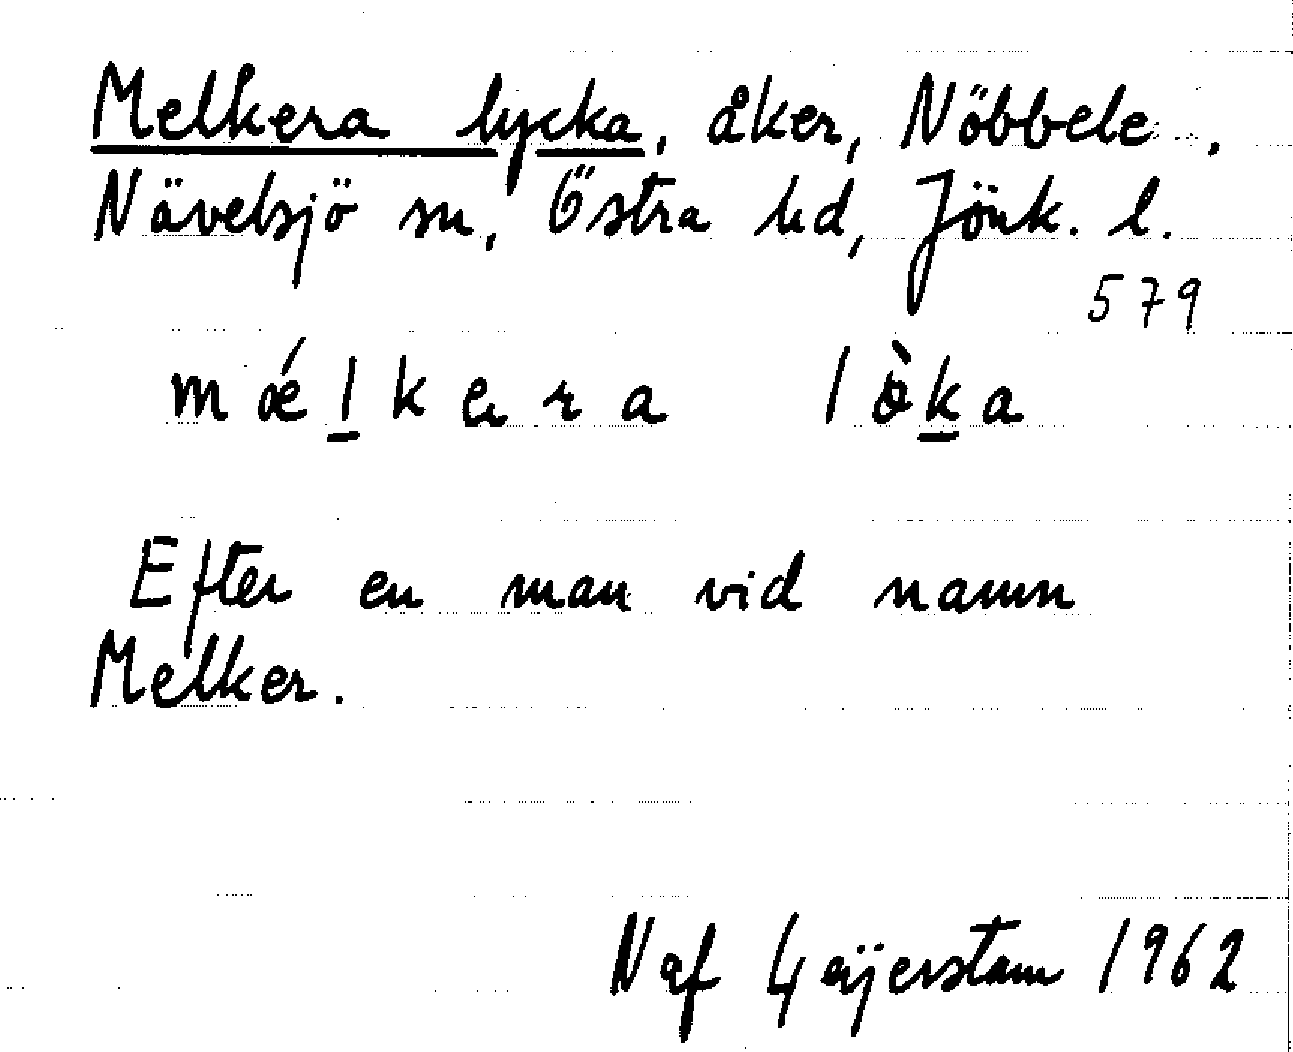 Melkera lycka, åker, Nöbbele.
Nävelsjö sn, Östra hd, Jönk. l.
579
mǽl̲kera lòk̲a
Efter en man vid namn
Melker.
N af Geijerstam 1962